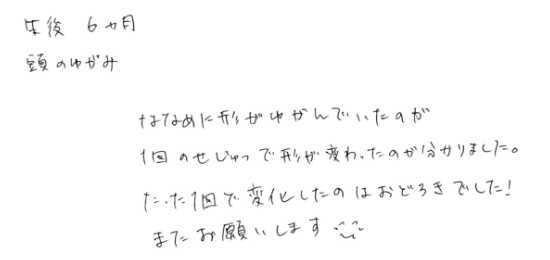 生後 6ヵ月
頭のゆがみ
ななめに形がゆがんでいたのが
1回のせじゅつで形が変わったのが分かりました。
たった1回で変化したのはおどろきでした!
またお願いします